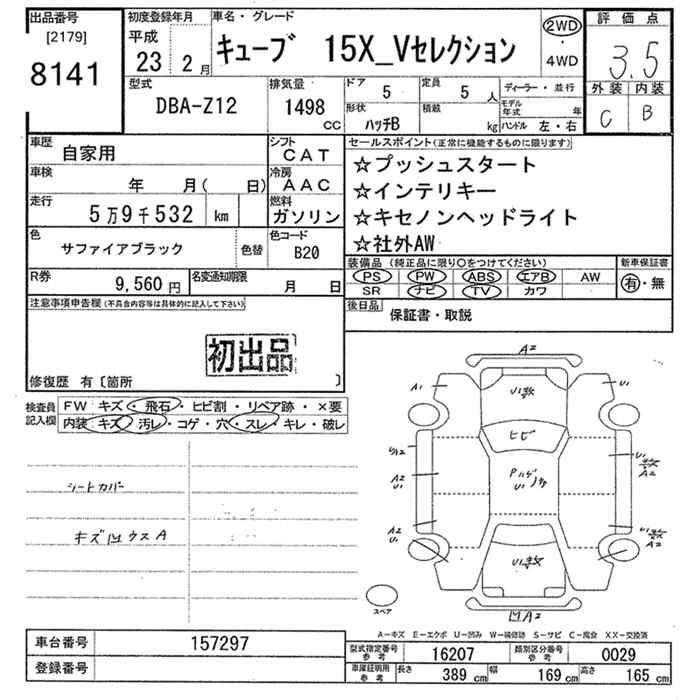 出品番号
[2179]
8141
初度登録年月
平成
23 2月
車名・グレード
キューブ 15X_Vセレクション
2WD
・
4WD
評価点
3.5
外装 内装
C B
型式
DBA-Z12
排気量
1498
CC
ドア
5
定員
5 人
形状
ハッチB
積載
kg
ディーラー・並行
モデル年式 年
ハンドル 左・右
車歴
自家用
シフト
CAT
車検
年 月( 日)
冷房
AAC
走行
5万9千532 km
燃料
ガソリン
色
サファイアブラック
色替
色コード
B20
R券
9,560円
名変通知期限
月 日
セールスポイント(正常に機能するものに限ります)
☆プッシュスタート
☆インテリキー
☆キセノンヘッドライト
☆社外AW
装備品(純正品に限り○をつけてください)
PS PW ABS エアB AW
SR ナビ TV カワ
新車保証書
有・無
後日品
保証書・取説
注意事項申告欄(不具合内容等は具体的に記入して下さい)
初出品
修復歴 有〔箇所 〕
検査員記入欄
FW キズ・飛石・ヒビ割・リペア跡・×要
内装 キズ・汚レ・コゲ・穴・スレ・キレ・破レ
シートカバー
A2
A1
U1
ヒビ
A2
U1
A2
U1
スペア
A-キズ E-エクボ U-凹み W-補修跡 S-サビ C-腐食 XX-交換済
車台番号
157297
登録番号
型式指定番号
参考
16207
類別区分番号
参考
0029
車庫証明用
参考
長さ
389 cm
幅
169 cm
高さ
165 cm